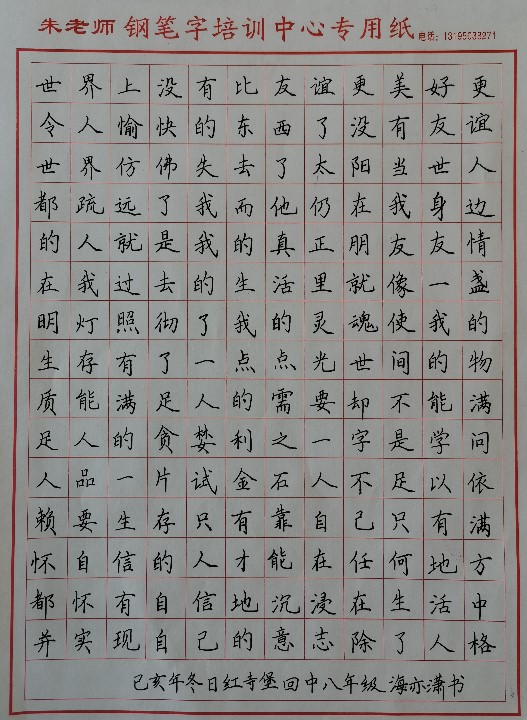 朱老师钢笔字培训中心专用纸 电话: 13195033271
世界上没有比友谊更美好更
令人愉快的东西了没有友谊
世界仿佛失去了太阳当世人
都疏远了我而他仍在我身边
的人就是我的真正朋友友情
在我过去的生活里就像一盏
明灯照彻了我的灵魂使我的
生存有了一点点光世间的物
质能满足人的需要却不能满
足人的贪婪利之一字是学问
人品一片试金石人不足以依
赖要生存只有靠自己只有满
怀自信的人才能在任何地方
都怀有自信地沉浸在生活中
并实现自己的意志除了人格
己亥年冬日红寺堡回中八年级 海亦潇书